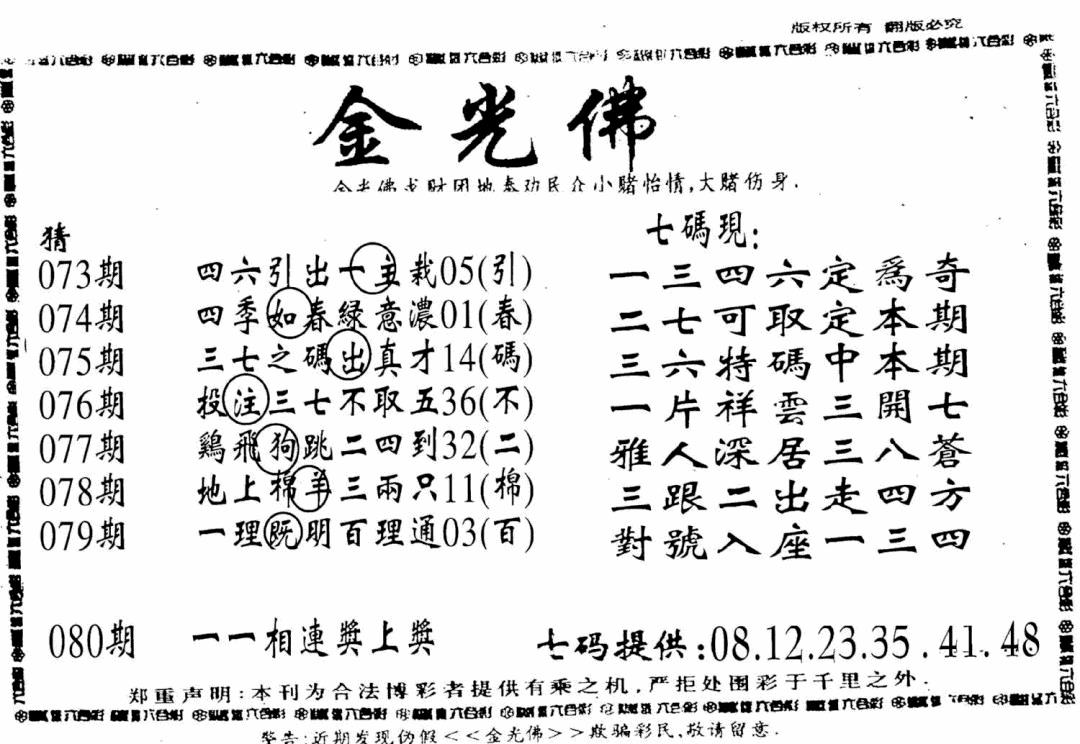 版权所有 翻版必究
金光佛
金光佛求财团地奉劝民众小赌怡情,大赌伤身.
猜
七碼現:
073期 四六引出一主栽05(引) 一三四六定為奇
074期 四季如春緑意濃01(春) 二七可取定本期
075期 三七之碼出真才14(碼) 三六特碼中本期
076期 投注三七不取五36(不) 一片祥雲三開七
077期 鷄飛狗跳二四到32(二) 雅人深居三八蒼
078期 地上棉羊三兩只11(棉) 三跟二出走四方
079期 一理既明百理通03(百) 對號入座一三四
080期 一一相連獎上獎 七码提供:08.12.23.35.41.48
郑重声明:本刊为合法博彩者提供有乘之机,严拒处围彩于千里之外.
警告:近期发现伪假<<金光佛>>欺骗彩民,敬请留意.